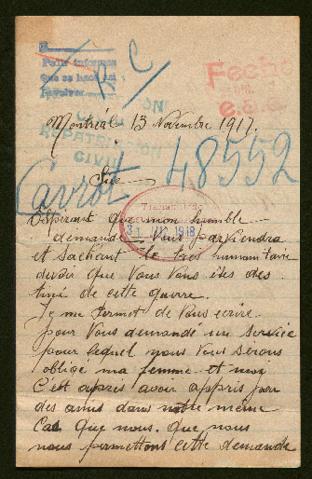 Para informes
que se hace ...
Fecha
B C
REPATRIACION
CIVIL
Montréal 13 Novembre 1917.
48552
Sir
Cavrot
Tramitado
31 1918
Esperant que mon humble
demande Vous parviendra
et Sachant le très humanitaire
devoir que Vous Vous êtes des
tiné de cette guerre.
Je me permet de Vous écrire
pour Vous demandé un Service
pour lequel nous Vous Serons
obligé ma femme et moi
C'est après avoir appris par
des amis dans notre même
Cas que nous. que nous
nous permettons cette demande